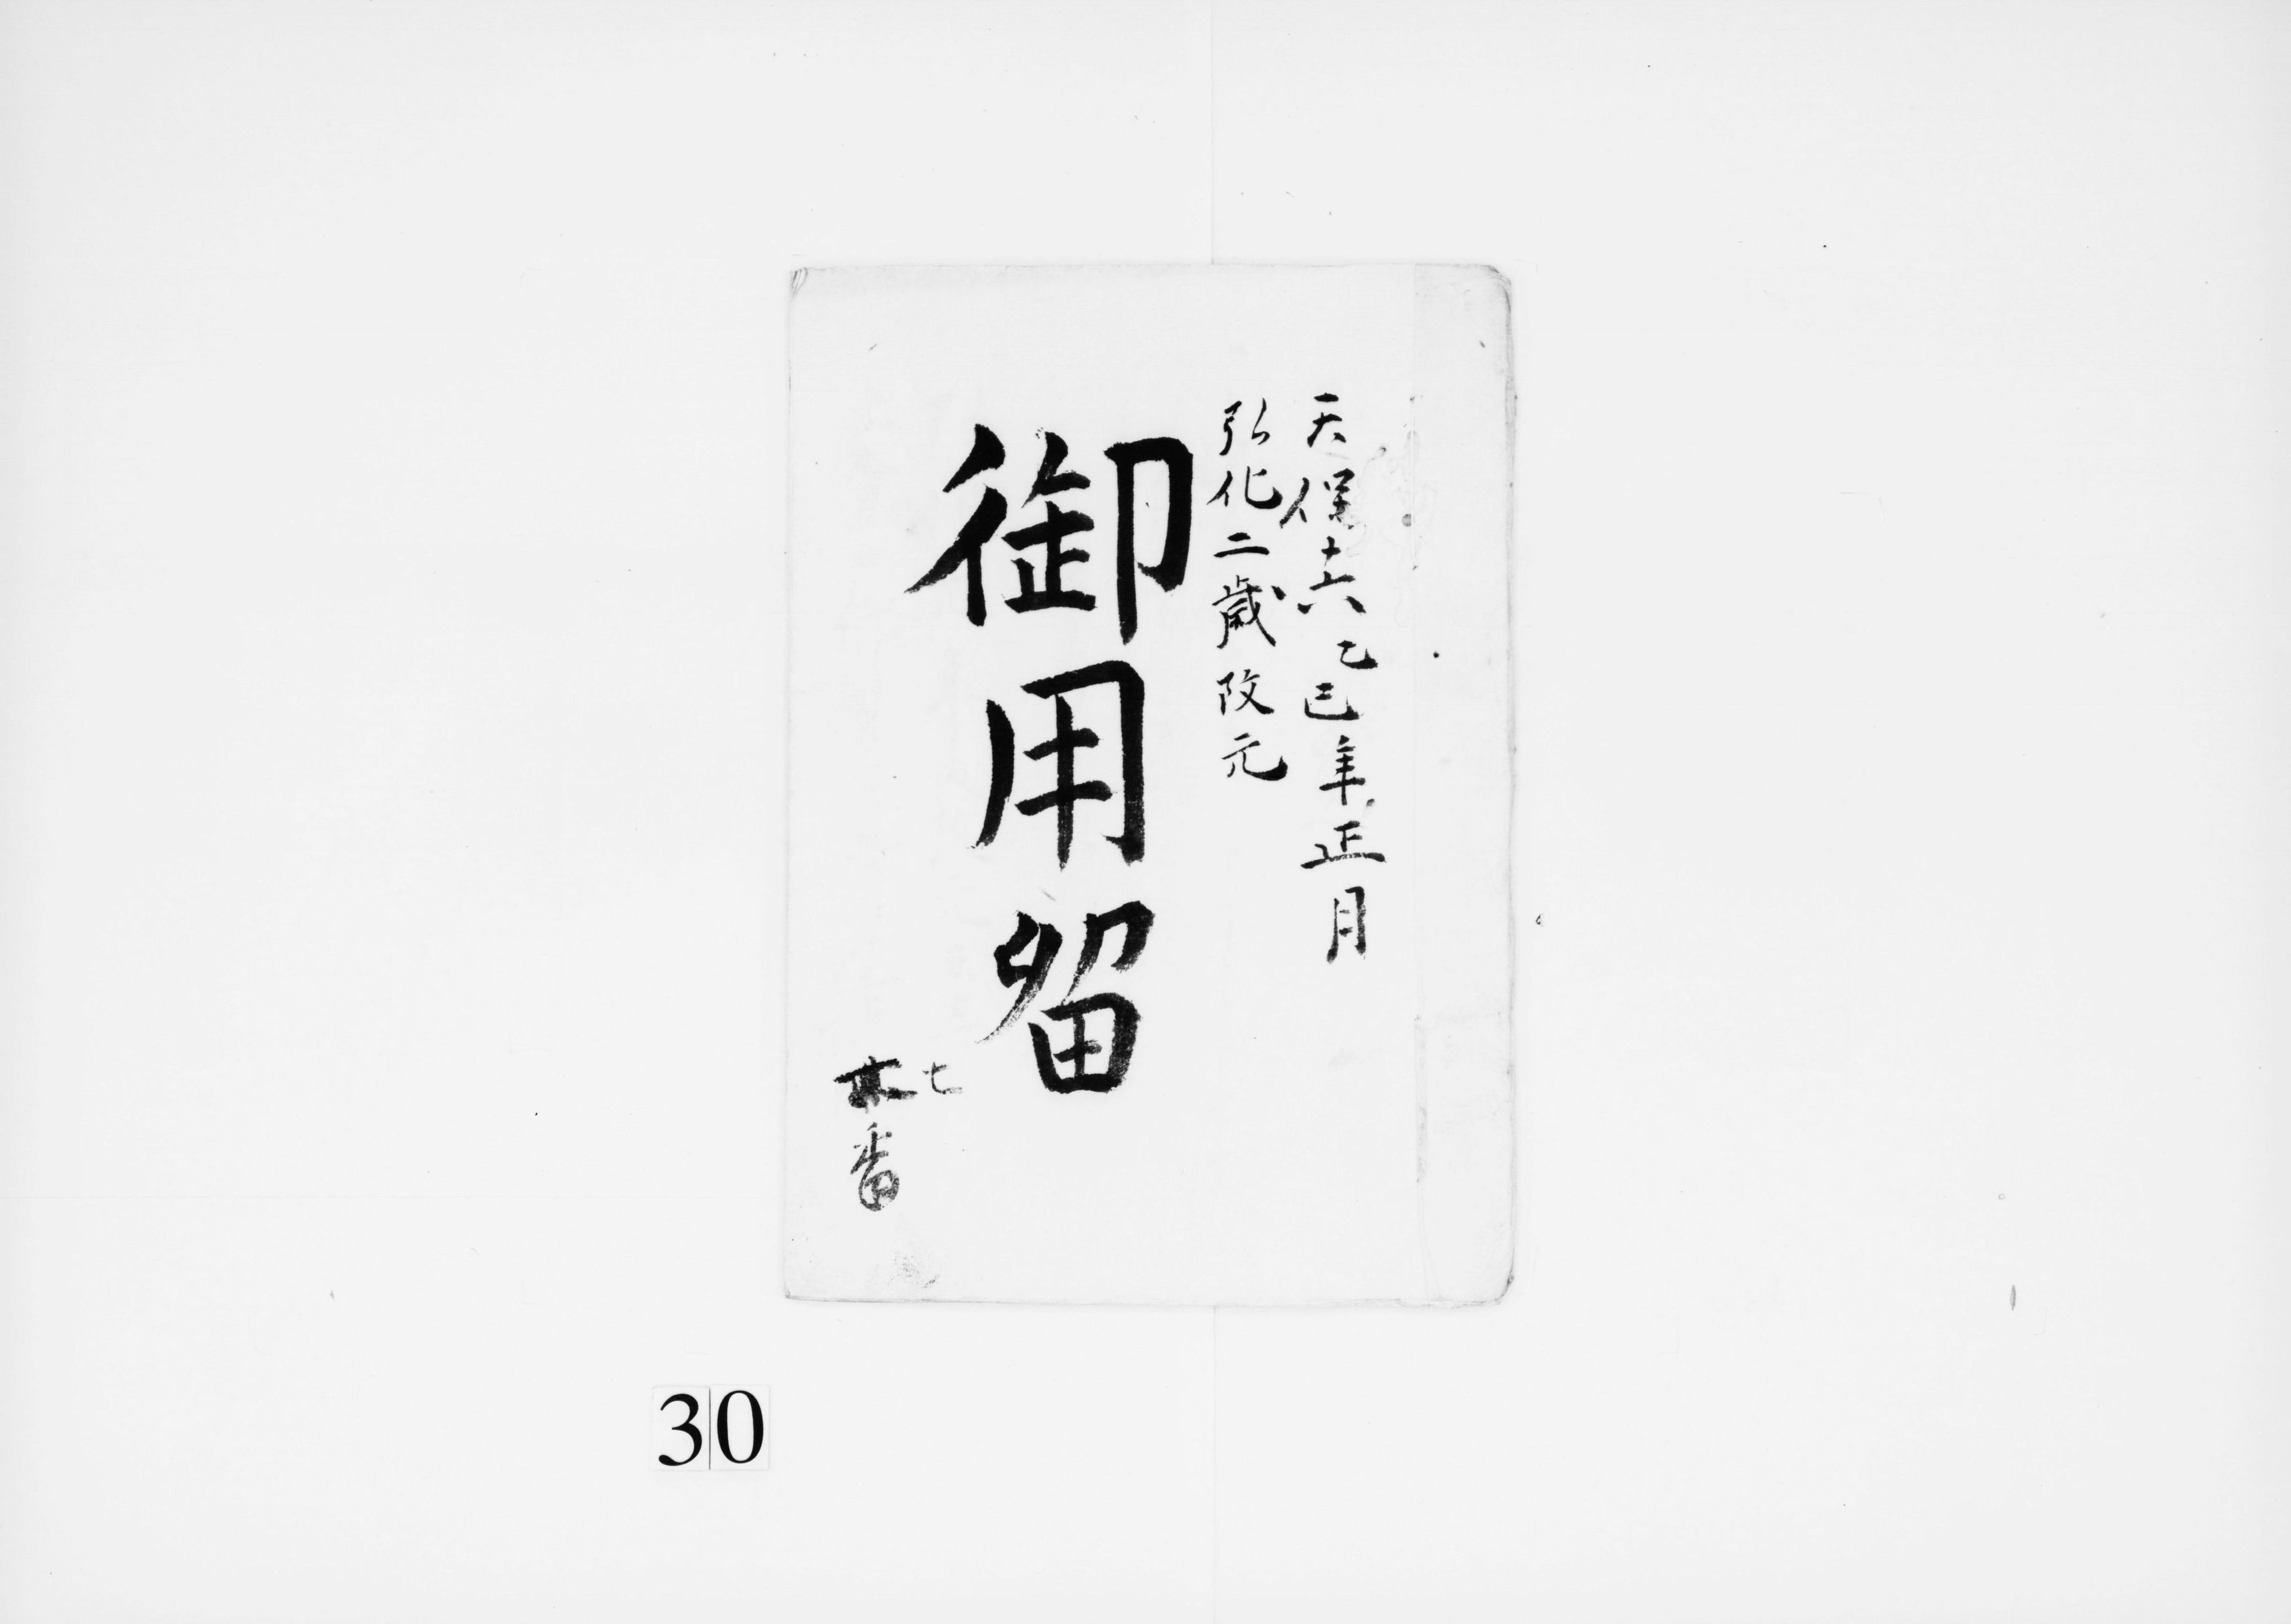 天保十六乙巳年正月
弘化二歳改元
御用留
七
番
30